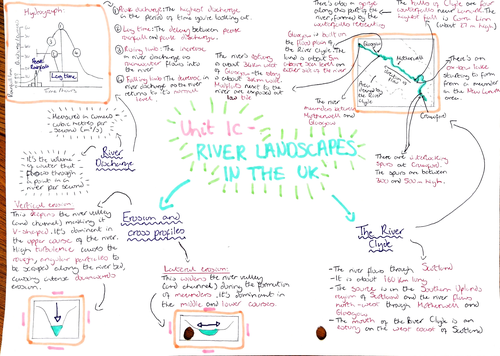 Hydrograph:
Peak Rainfall
Lag time
Time/Hours
Peak discharge: The highest discharge
in the period of time you're looking at.
Lag time: The delay between peak
rainfall and peak discharge.
Rising limb: The increase
in river discharge as
rainwater flows into
the river
Falling limb: The decrease in
river discharge as the river
returns to it's normal
level.
There's also a gorge
along this part of the
river, formed by the
waterfalls retreating.
The Falls of Clyde are four
waterfalls near Lanark. The
highest fall is Corra Linn
(about 27 m high)
Glasgow is built on
the flood plain of
the River Clyde. The
land is about 5m
above sea level on
either side of the river
Glasgow
Motherwell
Crawford
Area
drained
by the
River Clyde
There's an
ox-bow lake
starting to
form from
a meander
in the
area
The river's estuary
is about 34km west
of Glasgow
Mudflats next to
the river are exposed at
low tide
The river
meanders between
Motherwell and
Glasgow
There are interlocking
spurs at Crawford.
The spurs are between
300 and 500m high.
- Measured in cumecs
- cubic metres per
second (m³/s)
It's the volume
of water that
flows through
a point in a
river per second
River
Discharge
Unit 1c -
RIVER LANDSCAPES
IN THE UK
Vertical erosion:
This deepens the river valley
(and channel) making it
V-shaped. It's dominant in
the upper course of the river.
High turbulence causes the
rough, angular particles to
be scraped along the river bed,
causing intense downwards
erosion.
Erosion and
cross profiles
Lateral erosion:
This widens the river valley
(and channel) during the formation
of meanders. It's dominant in the
middle and lower courses.
The River
Clyde
- The river flows through Scotland
- It is about 160km long
- The source is in the Southern Uplands
region of Scotland and the river flows
north-west through Motherwell and
Glasgow
- The mouth of the River Clyde is an
estuary on the west coast of Scotland